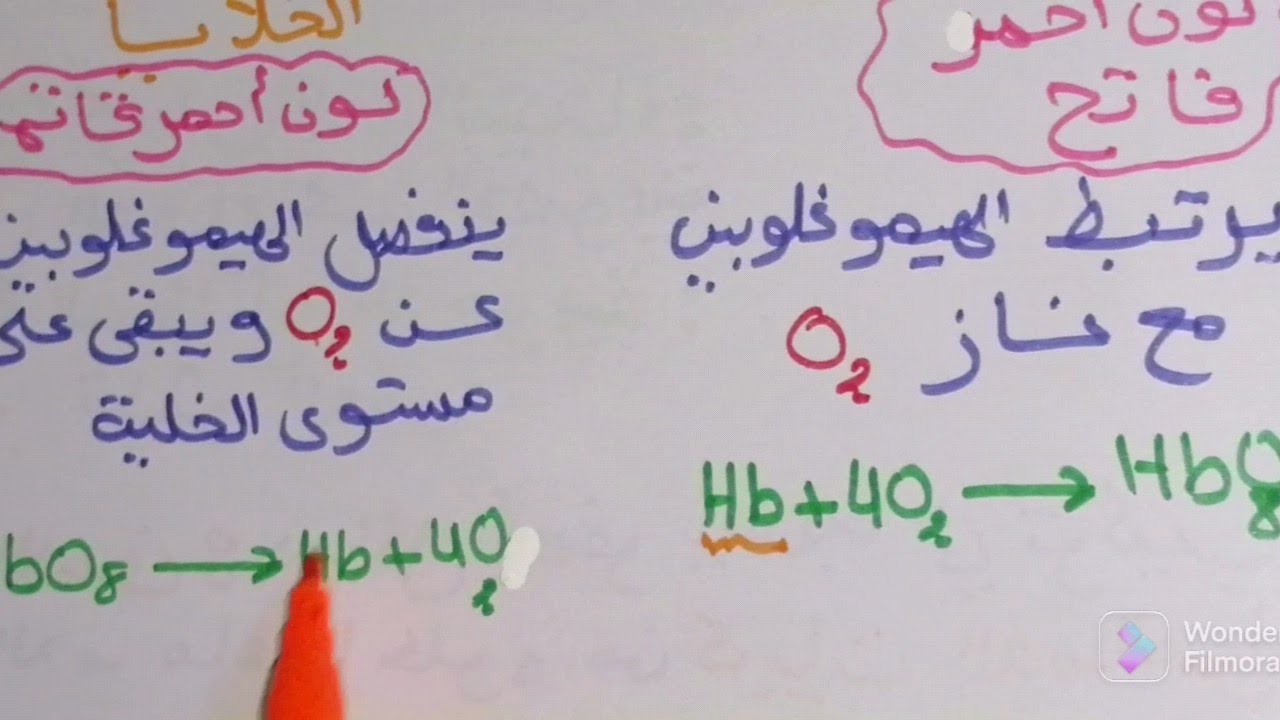 لون أحمر
فاتح
يرتبط الهيموغلوبين
مع غاز O₂
Hb+4O₂ → HbO₈
الخلايا
لون أحمر قاتم
ينفصل الهيموغلوبين
عن O₂ ويبقى على
مستوى الخلية
bO₈ → Hb+4O₂
Wonde
Filmora